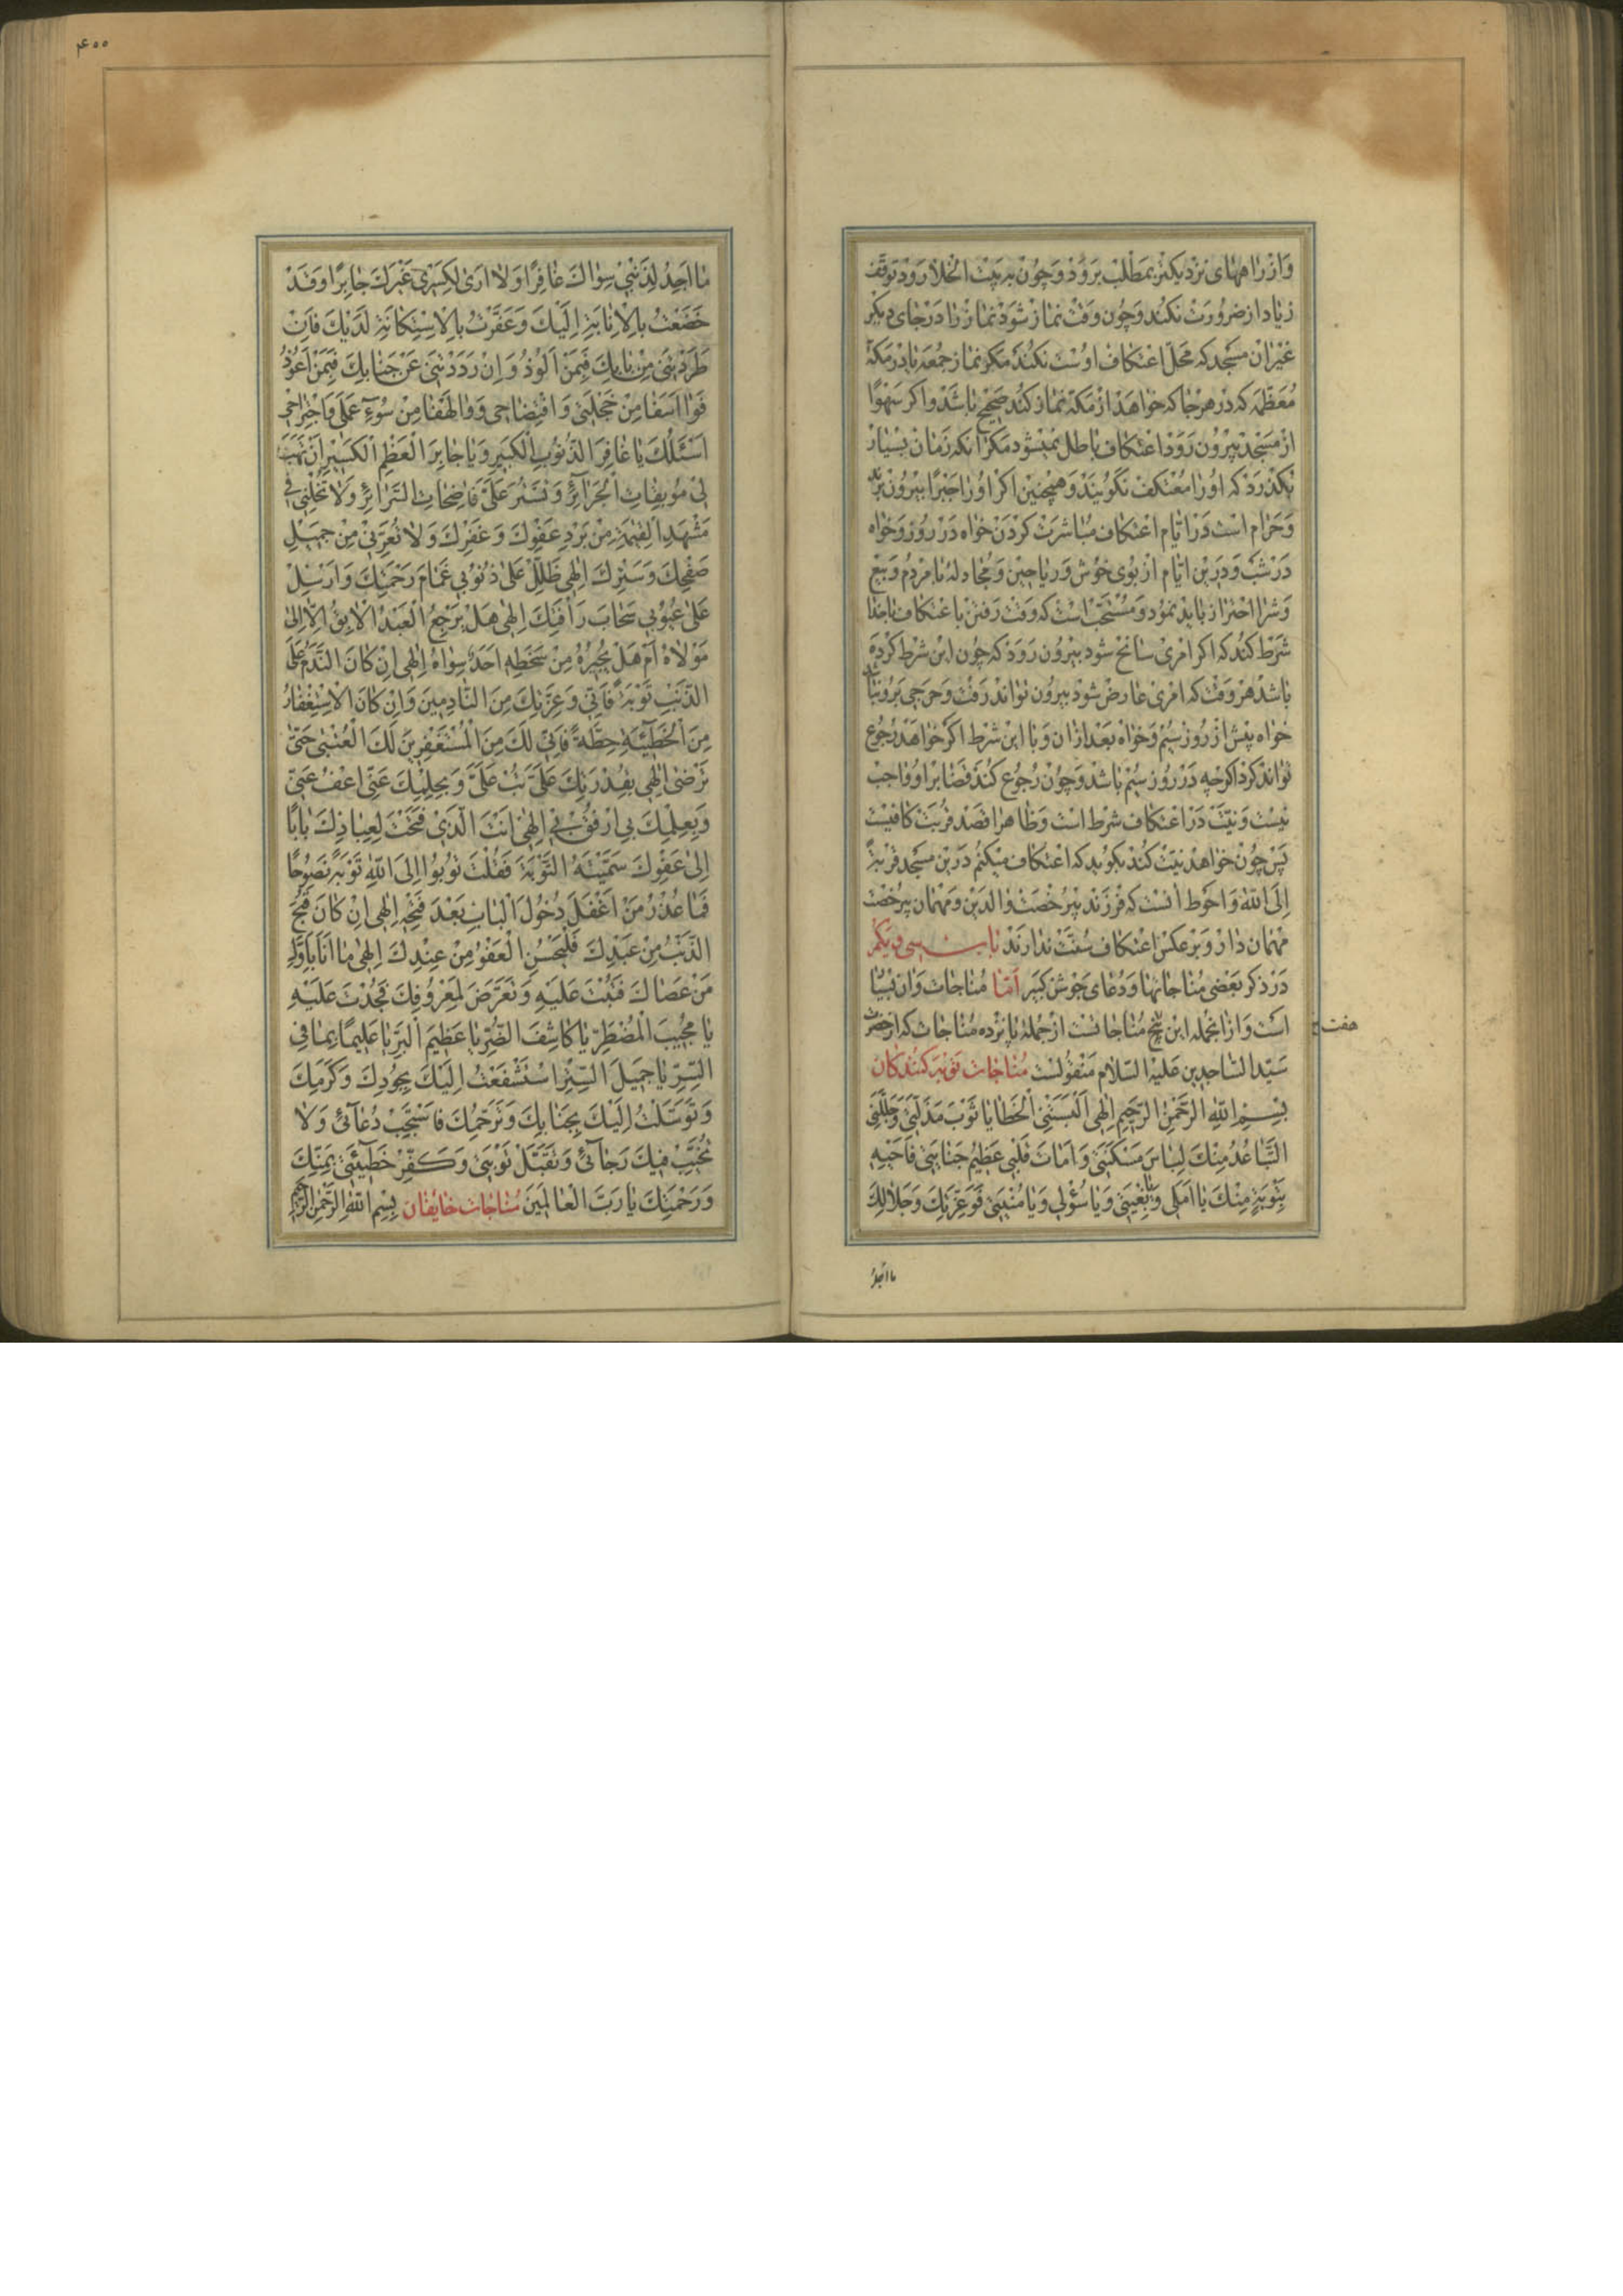 وَاز راههای نزدیکتر بمطلب برود و چون به بیت الخلا رود توقف
زیاد از ضرورت نکند و چون وقت نماز شود نماز را در جای دیکر
غیر ان مسجد که محلّ اعتکاف اوست نکند مکر نماز جمعه یا در مکهٔ
معظّمه که در هر جا که خواهد از مکه نماز کند صحیح باشد و اکر سهوًا
از مسجد بیرون رود اعتکاف باطل نمیشود مکر انکه زمان بسیار
بکذرد که او را معتکف نکویند و همچنین اکر او را جبرًا بیرون برند
و حرام است در ایّام اعتکاف مباشرت کردن خواه در روز و خواه
در شب و در این ایّام از بوی خوش و ریاحین و مجادله با مردم و بیع
و شرا احتراز باید نمود و مستحبّ است که وقت رفتن با عتکاف با خدا
شرط کند که اکر امری سانح شود بیرون رود که چون این شرط کرده
باشد هر وقت که امری عارض شود بیرون تواند رفت و حرجی بر او نباشد
خواه پیش از روز سیم و خواه بعد از ان و با این شرط اکر خواهد رجوع
تواند کرد اکرچه در روز سیم باشد و چون رجوع کند قضا بر او واجب
نیست و نیّت در اعتکاف شرط است و ظاهرا قصد قربت کافیست
پس چون خواهد نیّت کند بکوید که اعتکاف میکنم درین مسجد قربةً
إلی الله و احوط انست که فرزند بیرخصت والدین و مهمان بیرخصت
مهماندار و برعکس اعتکاف سنّت ندارند باب سی و یکم
در ذکر بعضی مناجاتها و دعای جوش کبیر امّا مناجات و ان بسیا
است و از انجمله این پنج مناجاتست از جمله پانزده مناجات که از حضرت
هفت
سیّد السّاجدین علیه السّلام منقولست مناجات توبه کنندکان
بِسْمِ اللهِ الرَّحْمٰنِ الرَّحِیمِ اِلٰهِی اَلْبَسَتْنِی الْخَطَایَا ثَوْبَ مَذَلَّتِی وَ جَلَّلَنِی
التَّبَاعُدُ مِنْكَ لِبَاسَ مَسْكَنَتِی وَ اَمَاتَ قَلْبِی عَظِیمُ جِنَایَتِی فَاَحْیِهِ
بِتَوْبَةٍ مِنْكَ یَا اَمَلِی وَ یَا بُغْیَتِی وَ یَا سُؤْلِی وَ یَا مُنْیَتِی فَوَعِزَّتِكَ وَ جَلَالِكَ
ما اجد
۴۰۰
مَا اَجِدُ لِذُنُوبِی سِوَاكَ غَافِرًا وَ لَا اَرَی لِكَسْرِی غَیْرَكَ جَابِرًا وَ قَدْ
خَضَعْتُ بِالْاِنَابَةِ اِلَیْكَ وَ عَفَّرْتُ بِالْاِسْتِكَانَةِ لَدَیْكَ فَاِنْ
طَرَدْتَنِی مِنْ بَابِكَ فَبِمَنْ اَلُوذُ وَ اِنْ رَدَدْتَنِی عَنْ جَنَابِكَ فَبِمَنْ اَعُوذُ
فَوَا اَسَفَا مِنْ خَجْلَتِی وَ افْتِضَاحِی وَ وَا لَهْفَا مِنْ سُوءِ عَمَلِی وَ اجْتِرَاحِی
اَسْئَلُكَ یَا غَافِرَ الذُّنُوبِ الْكَبِیرِ وَ یَا جَابِرَ الْعَظْمِ الْكَسِیرِ اَنْ تَهَبَ
لِی مُوبِقَاتِ الْجَرَائِرِ وَ تَسْتُرَ عَلَیَّ فَاضِحَاتِ السَّرَائِرِ وَ لَا تُخْلِنِی فِی
مَشْهَدِ الْقِیٰمَةِ مِنْ بَرْدِ عَفْوِكَ وَ غَفْرِكَ وَ لَا تُعَرِّنِی مِنْ جَمِیلِ
صَفْحِكَ وَ سَتْرِكَ اِلٰهِی ظَلِّلْ عَلٰی ذُنُوبِی غَمَامَ رَحْمَتِكَ وَ اَرْسِلْ
عَلٰی عُیُوبِی سَحَابَ رَأْفَتِكَ اِلٰهِی هَلْ یَرْجِعُ الْعَبْدُ الْاٰبِقُ اِلَّا اِلٰی
مَوْلَاهُ اَمْ هَلْ یُجِیرُهُ مِنْ سَخَطِهِ اَحَدٌ سِوَاهُ اِلٰهِی اِنْ كَانَ النَّدَمُ عَلَی
الذَّنْبِ تَوْبَةً فَاِنِّی وَ عِزَّتِكَ مِنَ النَّادِمِینَ وَ اِنْ كَانَ الْاِسْتِغْفَارُ
مِنَ الْخَطِیْئَةِ حِطَّةً فَاِنِّی لَكَ مِنَ الْمُسْتَغْفِرِینَ لَكَ الْعُتْبٰی حَتّٰی
تَرْضٰی اِلٰهِی بِقُدْرَتِكَ عَلَیَّ تُبْ عَلَیَّ وَ بِحِلْمِكَ عَنِّی اعْفُ عَنِّی
وَ بِعِلْمِكَ بِی ارْفُقْ بِی اِلٰهِی اَنْتَ الَّذِی فَتَحْتَ لِعِبَادِكَ بَابًا
اِلٰی عَفْوِكَ سَمَّیْتَهُ التَّوْبَةَ فَقُلْتَ تُوبُوا اِلَی اللهِ تَوْبَةً نَصُوحًا
فَمَا عُذْرُ مَنْ اَغْفَلَ دُخُولَ الْبَابِ بَعْدَ فَتْحِهِ اِلٰهِی اِنْ كَانَ قَبُحَ
الذَّنْبُ مِنْ عَبْدِكَ فَلْیَحْسُنِ الْعَفْوُ مِنْ عِنْدِكَ اِلٰهِی مَا اَنَا بِاَوَّلِ
مَنْ عَصَاكَ فَتُبْتَ عَلَیْهِ وَ تَعَرَّضَ لِمَعْرُوفِكَ فَجُدْتَ عَلَیْهِ
یَا مُجِیبَ الْمُضْطَرِّ یَا كَاشِفَ الضُّرِّ یَا عَظِیمَ الْبِرِّ یَا عَلِیمًا بِمَا فِی
السِّرِّ یَا جَمِیلَ السِّتْرِ اسْتَشْفَعْتُ اِلَیْكَ بِجُودِكَ وَ كَرَمِكَ
وَ تَوَسَّلْتُ اِلَیْكَ بِجَنَابِكَ وَ تَرَحُّمِكَ فَاسْتَجِبْ دُعَآئِی وَ لَا
تُخَیِّبْ فِیكَ رَجَآئِی وَ تَقَبَّلْ تَوْبَتِی وَ كَفِّرْ خَطِیْئَتِی بِمَنِّكَ
وَ رَحْمَتِكَ یَا رَبَّ الْعَالَمِینَ مناجات خایفان بِسْمِ اللهِ الرَّحْمٰنِ الرَّحِیمِ